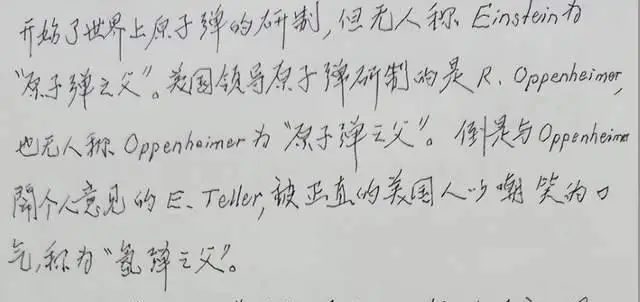 开始了世界上原子弹的研制，但无人称 Einstein为
“原子弹之父”。美国领导原子弹研制的是R. Oppenheimer,
也无人称 Oppenheimer为“原子弹之父”。倒是与Oppenheimer
闹个人意见的 E. Teller, 被正直的美国人以嘲笑为口
气，称为“氢弹之父”。